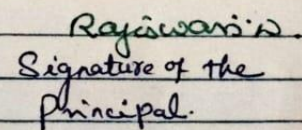 Rajiswari.D.
Signature of the
Principal.